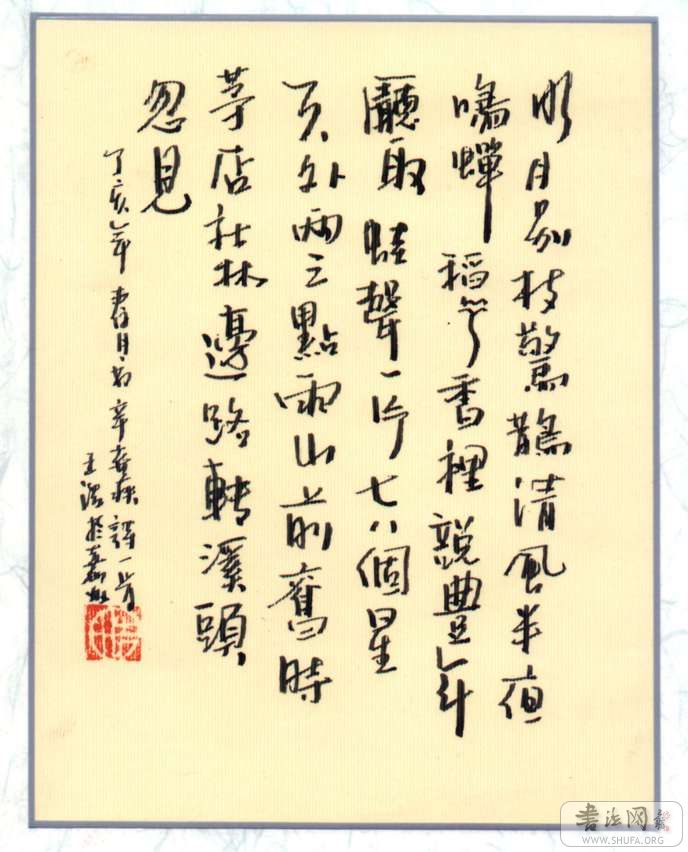 明月別枝驚鵲清風半夜
鳴蟬稻花香裡說豐年
聽取蛙聲一片七八個星
天外兩三點雨山前舊時
茅店社林邊路轉溪頭
忽見
丁亥年春月書辛棄疾詩一首
王於
書法网
WWW.SHUFA.ORG